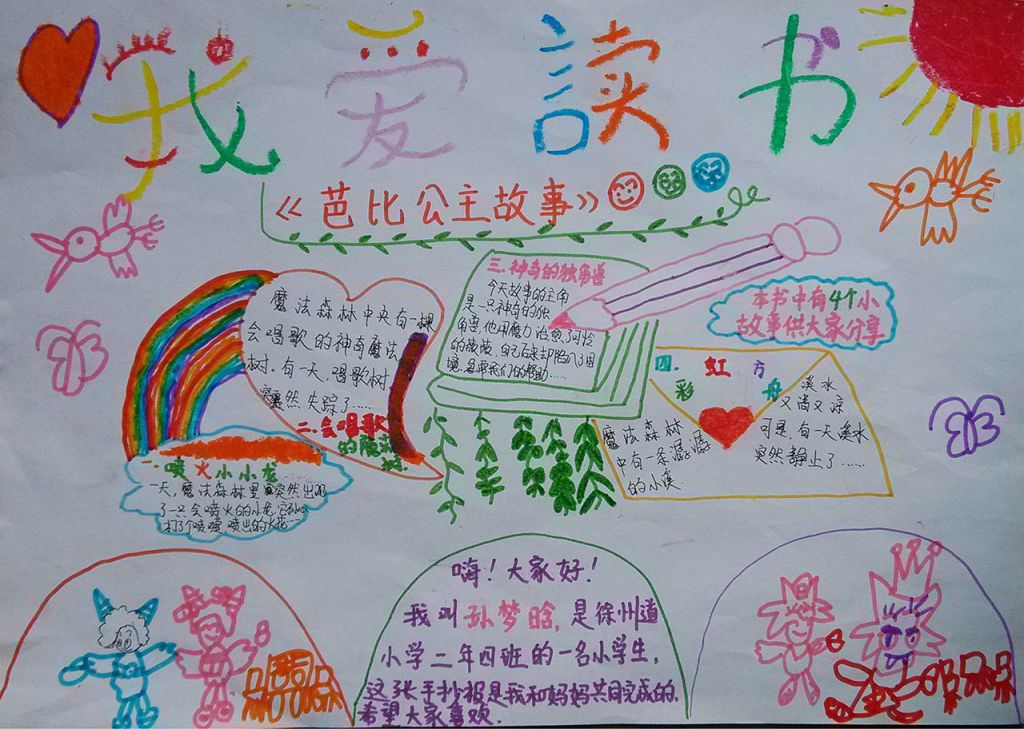 我爱读书
《芭比公主故事》
三.神奇的独角兽
今天故事的主角
是一只神奇的独
角兽,他用魔力治愈了可怜
的薇薇,自己后来却陷入了困
境,急需我们的帮助……
本书中有4个小
故事供大家分享
魔法森林中央有一棵
会唱歌的神奇魔法
树.有一天,唱歌树
突然失踪了……
二.会唱歌
的魔法
树
四.彩虹方舟
魔法森林
中有一条潺潺
的小溪
溪水
又清又凉
可是,有一天溪水
突然静止了……
一.喷火小小龙
一天,魔法森林里突然出现
了一只会喷火的小龙,
打了个喷嚏喷出的火花……
嗨!大家好!
我叫孙梦晗,是徐州道
小学二年四班的一名小学生,
这张手抄报是我和妈妈共同完成的,
希望大家喜欢.